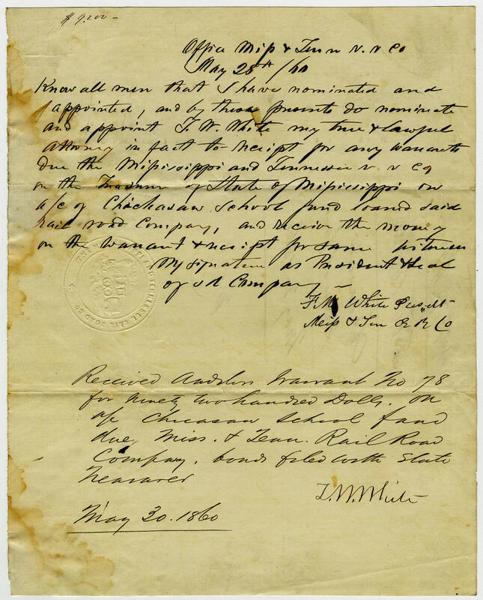 $ 9,200 —
Office Mip & Tenn R. R Co
May 28th /60
Know all men that I have nominated and
appointed, and by these presents do nominate
and appoint T. W. White my true & lawful
attorney in fact to receipt for any warrants
due the Mipissippi and Tennessee R. R Co
on the Treasurer of State of Mipissippi on
a/c of Chickasaw School fund loaned said
rail road Company, and receive the money
on the warrant & receipt for same witness
My signature as President & seal
of sd Company —
F. M. White Presdt
Mip & Ten R R Co
Received Auditors Warrant No 78
for Ninety two hundred Dolls. on
a/c Chicasaw School fund
due Miss. & Tenn. Rail Road
Company, bonds filed with State
Treasurer
T. W. White
May 30. 1860